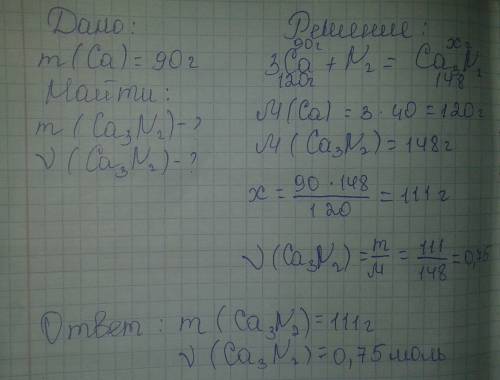 Дано:
m(Ca) = 90г
Найти:
m(Ca₃N₂) - ?
ν(Ca₃N₂) - ?
Решение:
90г xг
3Ca + N₂ = Ca₃N₂
120г 148
M(Ca) = 3 · 40 = 120г
M(Ca₃N₂) = 148г
x = 90 · 148 / 120 = 111г
ν(Ca₃N₂) = m/M = 111/148 = 0,75
Ответ: m(Ca₃N₂) = 111г
ν(Ca₃N₂) = 0,75 моль